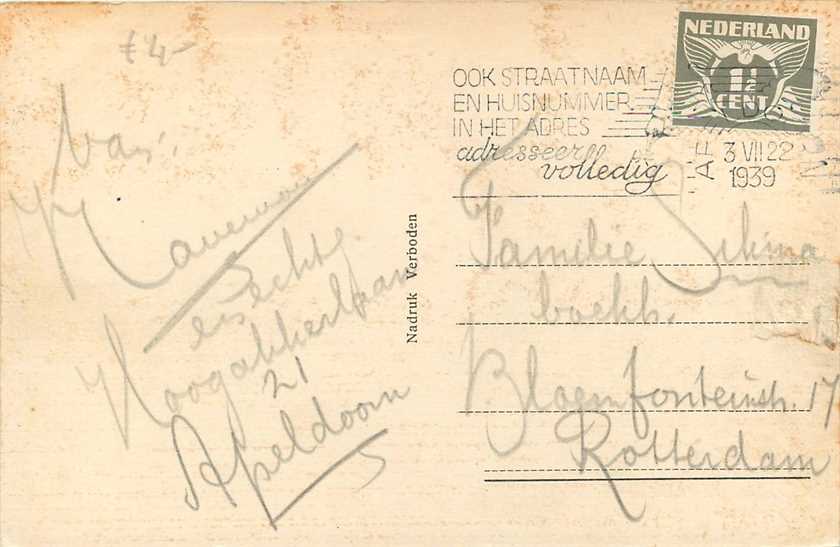 £ 4,-
NEDERLAND
1½
CENT
OOK STRAATNAAM
EN HUISNUMMER
IN HET ADRES
adresseer
volledig
3 VII 22
1939
Van:
en echte
Hoogakkerlaan
21
Apeldoorn
Nadruk Verboden
Familie Sikma
boekh.
Bloemfonteinstr. 17
Rotterdam